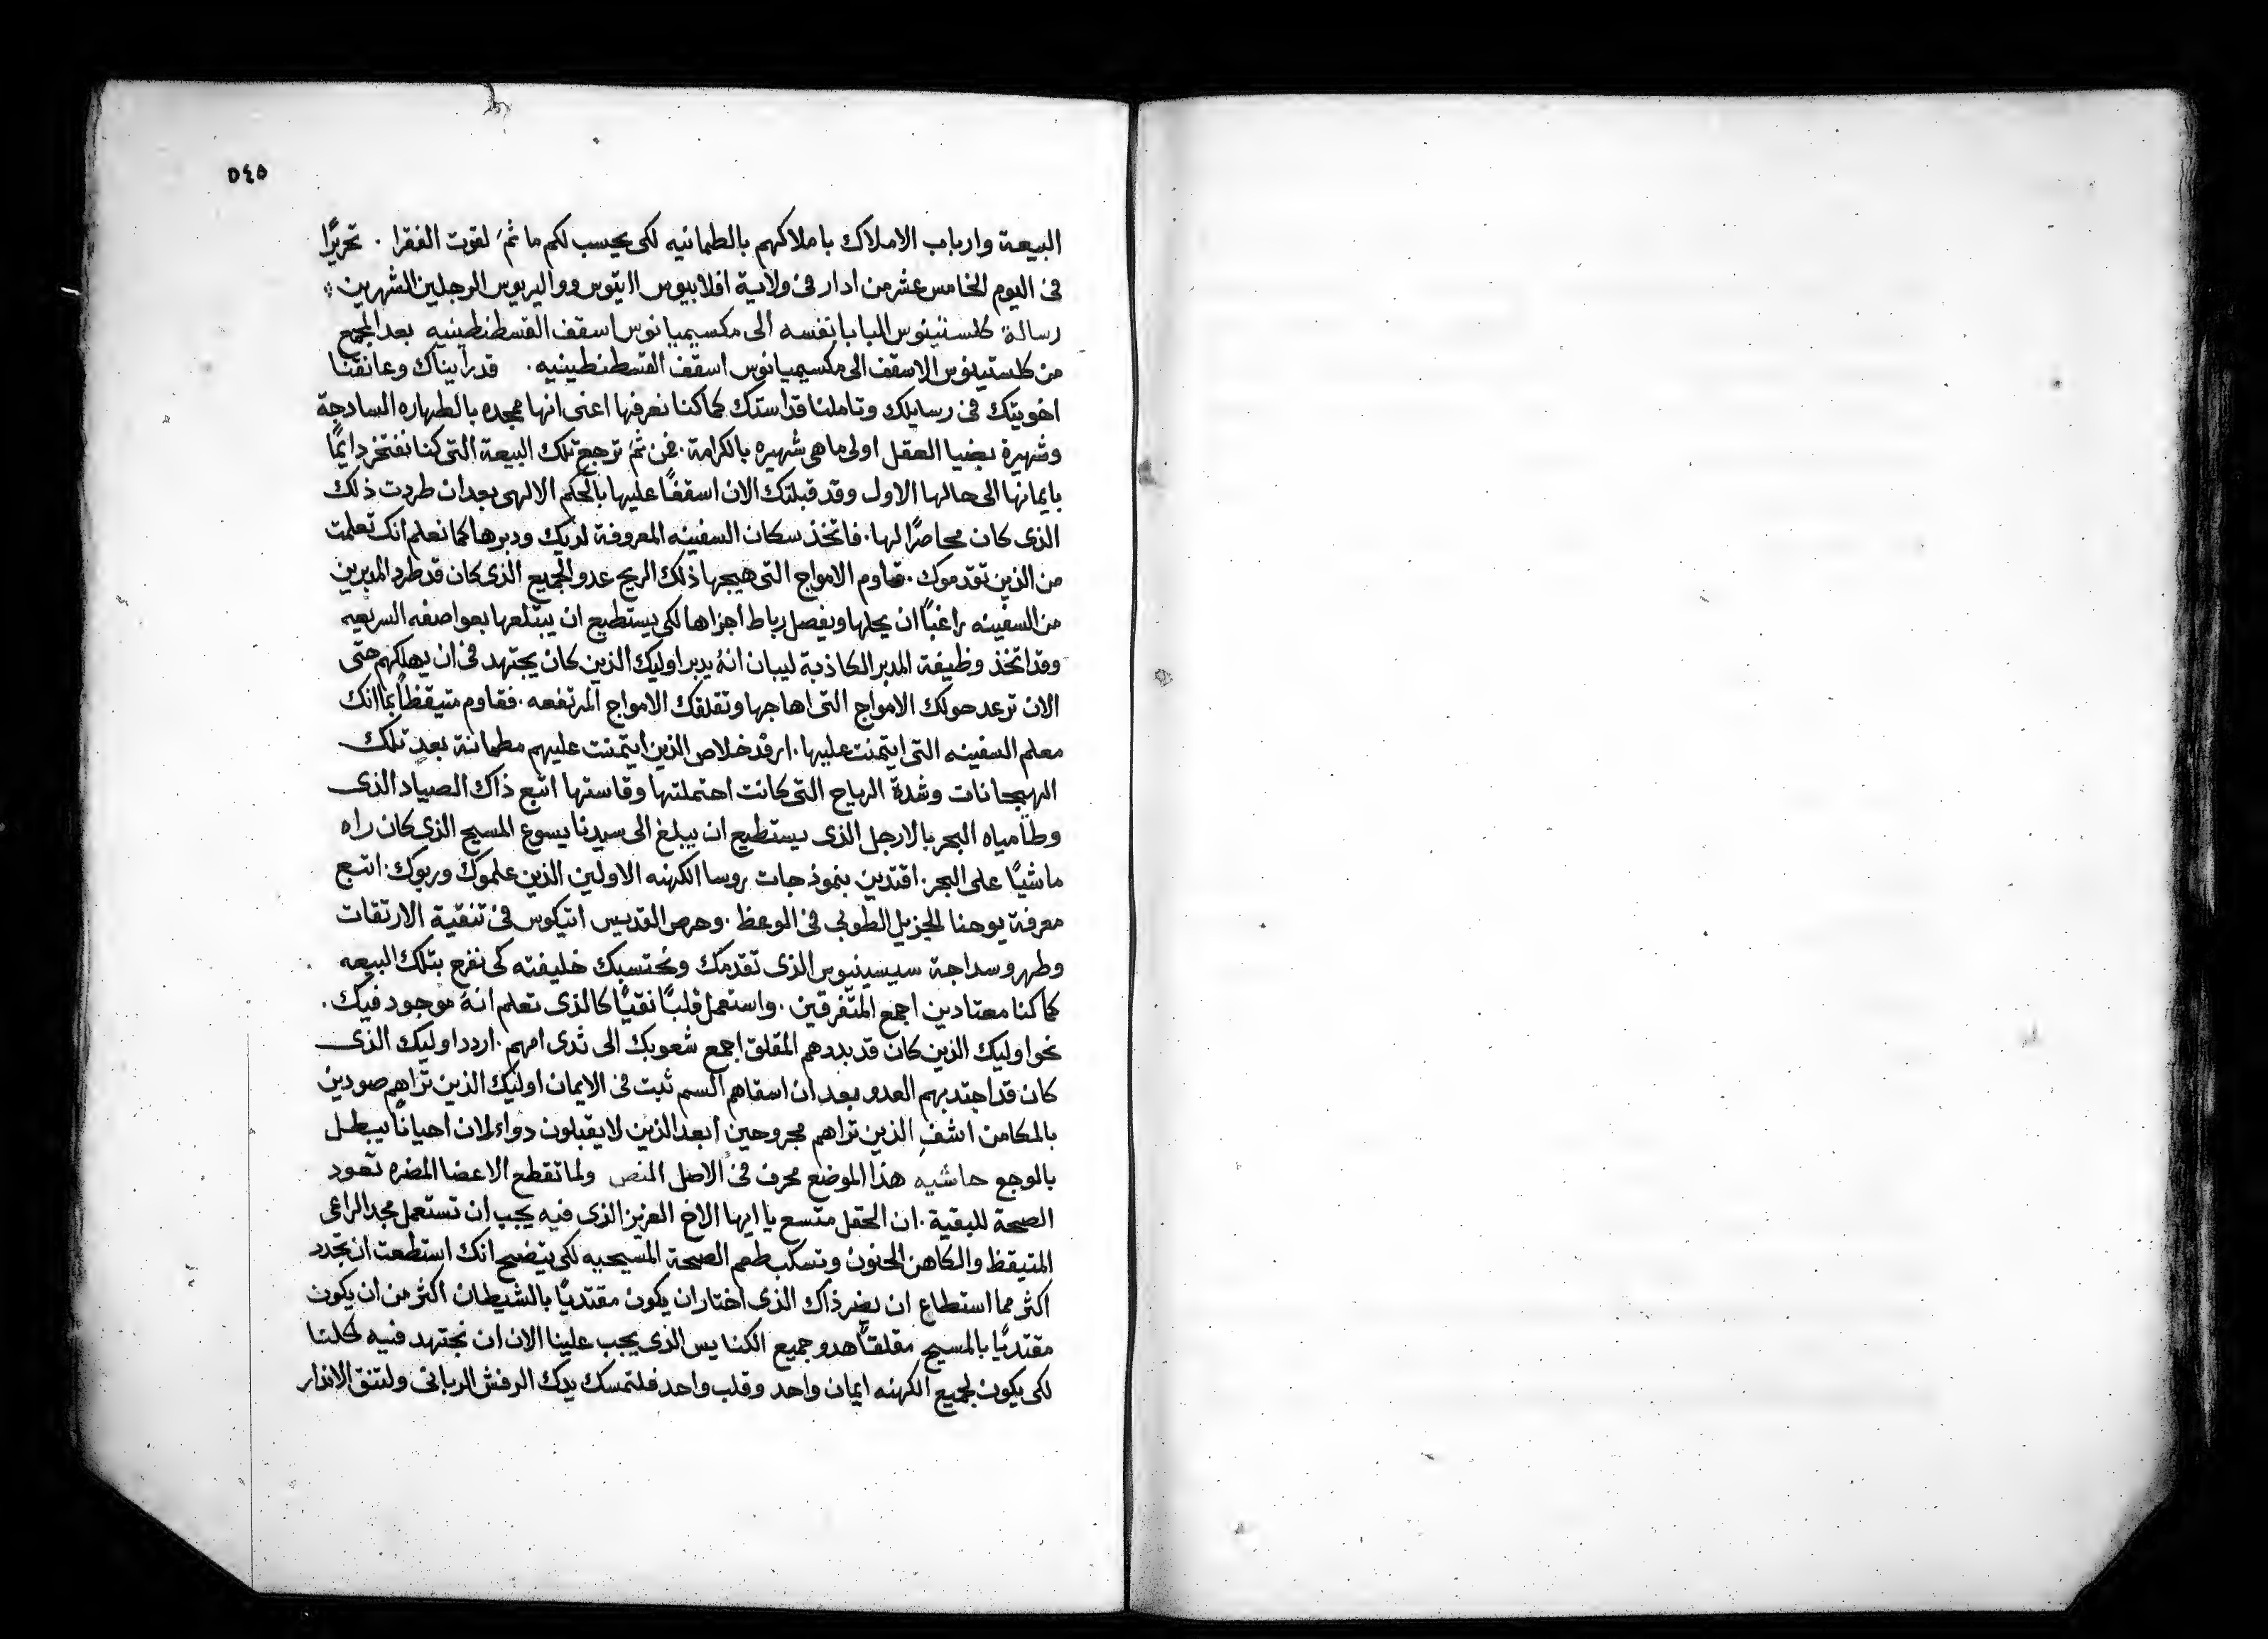 ٥٤٥
البيعة وارباب الاملاك باملاكهم بالطمانيه لكى يحسب لكم ما ثمَ لقوت الفقرا . تحريرًا
فى اليوم الخامس عشر من ادار فى ولاية افلابيوس ايتيوس وواليريوس الرجلين الشهرين
رسالة كلستينوس البابا نفسه الى مكسيميانوس اسقف القسطنطينيه بعد المجمع
من كلستينوس الاسقف الى مكسيميانوس اسقف القسطنطينيه . قد رايناك وعانقنا
اخويتك فى رسايلك وتاملنا قداستك كما كنا نعرفها اعنى انها ممجده بالطهاره السادجة
وشهيرة بضيا العقل اولى ما هى شهيره بالكرامة . فمن ثمَ ترجع تلك البيعة التى كنا نفتخر دايمًا
بايمانها الى حالها الاول وقد قبلتك الان اسقفًا عليها بالحكم الالهى بعد ان طردت ذلك
الذى كان محاصرًا لها . فاتخذ سكان السفينه المعروفة لديك ودبرها كما نعلم انك تعلمت
من الذين تقدموك . قاوم الامواج التى هيجها ذلك الريح عدو الجميع الذى كان قد طرد المدبرين
من السفينه راغبًا ان يحلها ويفصل رباط اجزاها لكى يستطيع ان يبتلعها بعواصفه السريعه
وقد اتخذ وظيفة المدبر الكاذبة ليبان انهُ يدبر اوليك الذين كان يجتهد فى ان يهلكهم حتى
الان ترعد حولك الامواج التى اهاجها وتقلقك الامواج المرتفعه . فقاوم متيقظًا بما انك
معلم السفينه التى ايتمنت عليها . ارفد خلاص الذين ايتمنت عليهم مطمانة بعد تلك
الهيجانات وشدة الرياح التى كانت احتملتها وقاستها اتبع ذاك الصياد الذى
وطا مياه البحر بالارجل الذى يستطيع ان يبلغ الى سيدنا يسوع المسيح الذى كان راه
ماشيًا على البحر . اقتدين بنموذجات روسا الكهنه الاولين الذين علموك وربوك . اتبع
معرفة يوحنا الجزيل الطوبى فى الوعظ . وحرص القديس اتيكوس فى تنقية الارتقات
وطهر وسداجة سيسينيوس الذى تقدمك ونحتسبك خليفته كى نفرح بتلك البيعه
كما كنا معتادين اجمع المتفرقين . واستعمل قلبًا نقيًا كالذى تعلم انهُ موجود فيك .
نحو اوليك الذين كان قد بددهم المقلق اجمع شعوبك الى ثدى امهم . اردد اوليك الذى
كان قد اجتدبهم العدو بعد ان اسقاهم السم ثبت فى الايمان اوليك الذين تراهم صودين
بالمكامن اشفِ الذين تراهم مجروحين ابعد الذين لا يقبلون دواء لان احيانًا يبطل
بالوجع حاشيه هذا الموضع محرف فى الاصل النص ولما تقطع الاعضا المضره تعود
الصحة للبقية . ان الحقل متسع يا ايها الاخ العزيز الذى فيه يجب ان تستعمل مجد الراعى
المتيقظ والكاهن الحنون وتسكب طعم الصحة المسيحيه لكى يتضح انك استطعت ان تجدد
اكثر مما استطاع ان يضر ذاك الذى اختار ان يكون مقتديًا بالشيطان اكثر من ان يكون
مقتديًا بالمسيح مقلقًا هدو جميع الكنايس الذى يجب علينا الان ان نجتهد فيه كلنا
لكى يكون لجميع الكهنه ايمان واحد وقلب واحد فلتمسك يدك الرفش الربانى ولتنق الاندار